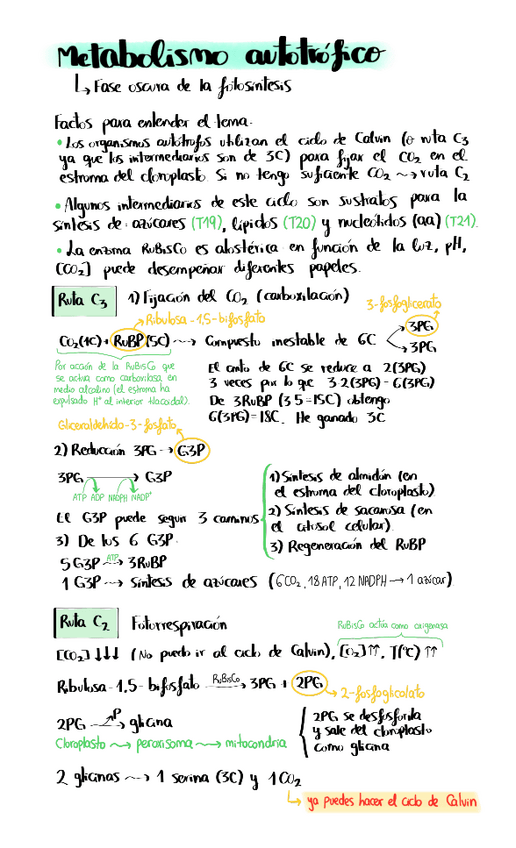 Metabolismo autotrófico
↳ Fase oscura de la fotosíntesis
Factos para entender el tema.
• Los organismos autótrofos utilizan el ciclo de Calvin (o ruta C3
ya que los intermediarios son de 3C) para fijar el CO2 en el
estroma del cloroplasto. Si no tengo suficiente CO2 ⇝ ruta C2
• Algunos intermediarios de este ciclo son sustratos para la
síntesis de: azúcares (T19), lípidos (T20) y nucleótidos (aa) (T21).
• La enzima RuBisCo es alostérica en función de la luz, pH,
[CO2] puede desempeñar diferentes papeles.
Ruta C3 1) Fijación del CO2 (carboxilación)
3-fosfoglicerato
Ribulosa-1,5-bifosfato
CO2(1C) + RuBP(5C) ⇝ Compuesto inestable de 6C
3PG
3PG
Por acción de la RuBisCo que
se activa como carboxilasa, en
medio alcalino (el estroma ha
expulsado H+ al interior tilacoidal).
El cmto de 6C se reduce a 2(3PG)
3 veces por lo que 3·2(3PG) - 6(3PG)
De 3RuBP (3·5=15C) obtengo
6(3PG)=18C. He ganado 3C
Gliceraldehído-3-fosfato
2) Reducción 3PG → G3P
3PG → G3P
ATP ADP NADPH NADP+
El G3P puede seguir 3 caminos
1) Síntesis de almidón (en
el estroma del cloroplasto)
2) Síntesis de sacarosa (en
el citosol celular).
3) Regeneración del RuBP
3) De los 6 G3P.
5 G3P ATP⇝ 3RuBP
1 G3P ⇝ Síntesis de azúcares (6CO2, 18 ATP, 12 NADPH → 1 azúcar)
Ruta C2 Fotorrespiración
RuBisCo actúa como oxigenasa
[CO2] ↓↓↓ (No puedo ir al ciclo de Calvin), [O2]↑↑, T(ºC) ↑↑
Ribulosa-1,5-bifosfato RuBisCo→ 3PG + 2PG
2-fosfoglicolato
2PG P→ glicina
Cloroplasto ⇝ peroxisoma ⇝ mitocondria
2PG se desfosforila
y sale del cloroplasto
como glicina
2 glicinas ⇝ 1 serina (3C) y 1CO2
↳ ya puedes hacer el ciclo de Calvin